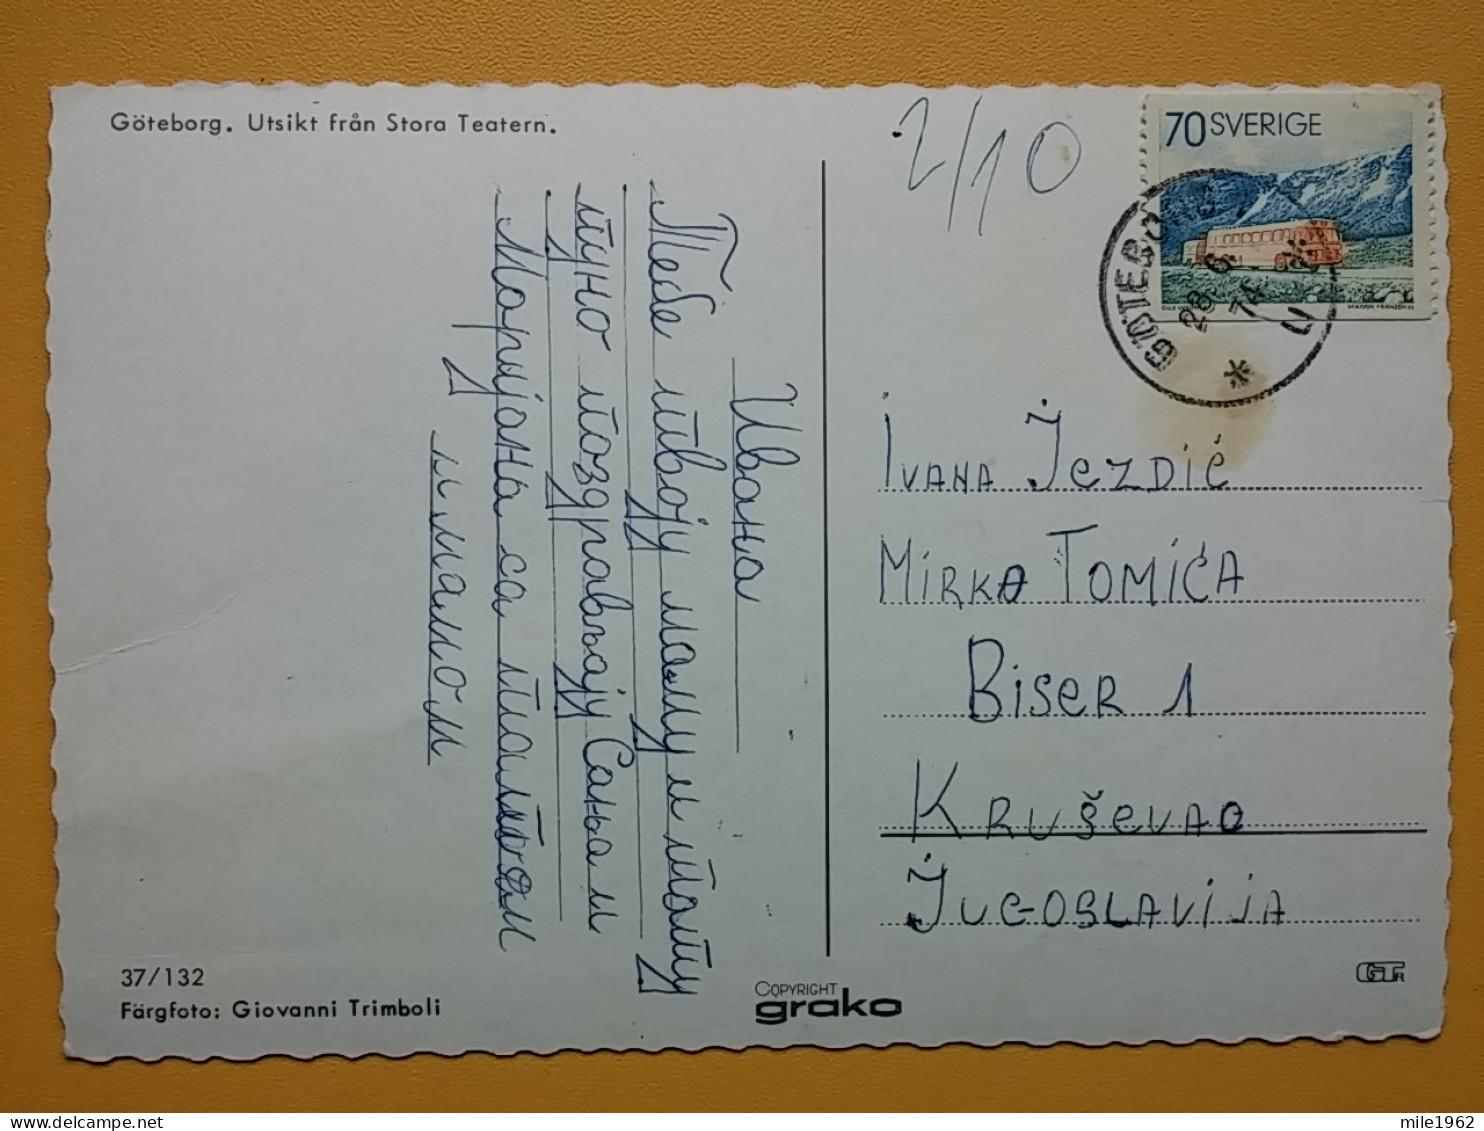 Göteborg. Utsikt från Stora Teatern.
2/10
70 SVERIGE
GÖTEBORG
28 6
74
Ивана
Тебе твоју маму и тату
пуно поздрављају Сања и
Маријана са татом
и мамом
Ivana Jezdić
Mirka Tomića
Biser 1
Kruševac
Jugoslavija
37/132
Färgfoto: Giovanni Trimboli
COPYRIGHT
grako
mile1962